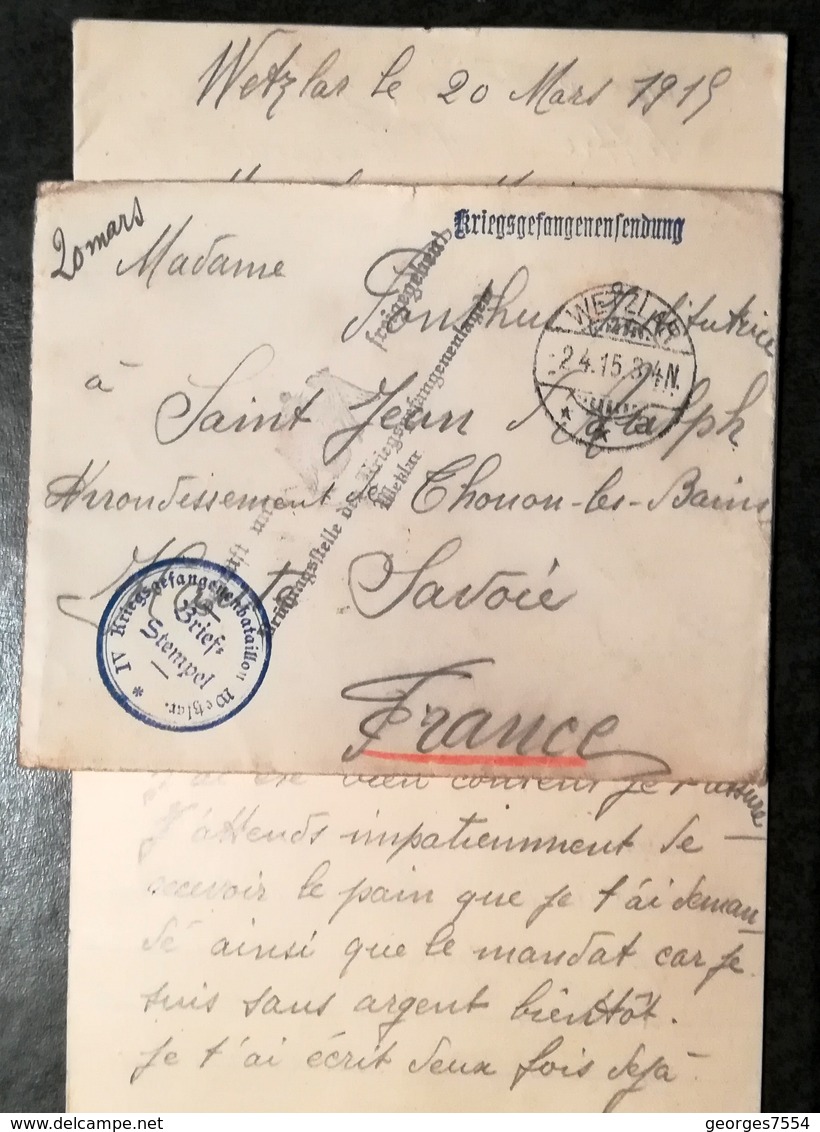 Wetzlar le 20 Mars 1915
20 mars
Kriegsgefangenensendung
Madame Institutrice
à Saint Jean d'Aulph
Arrondissement de Thonon-les-Bains
Haute Savoie
France
freigegeben
Prüfungsstelle des Kriegsgefangenenlagers
Wetzlar
WETZLAR
2.4.15.3-4N.
* IV Kriegsgefangenenbataillon Wetzlar.
Brief-
Stempel
J'ai été bien content je t'assure
J'attends impatiemment de
recevoir le pain que je t'ai deman-
dé ainsi que le mandat car je
suis sans argent bientôt.
Je t'ai écrit deux fois dejà
georges7554